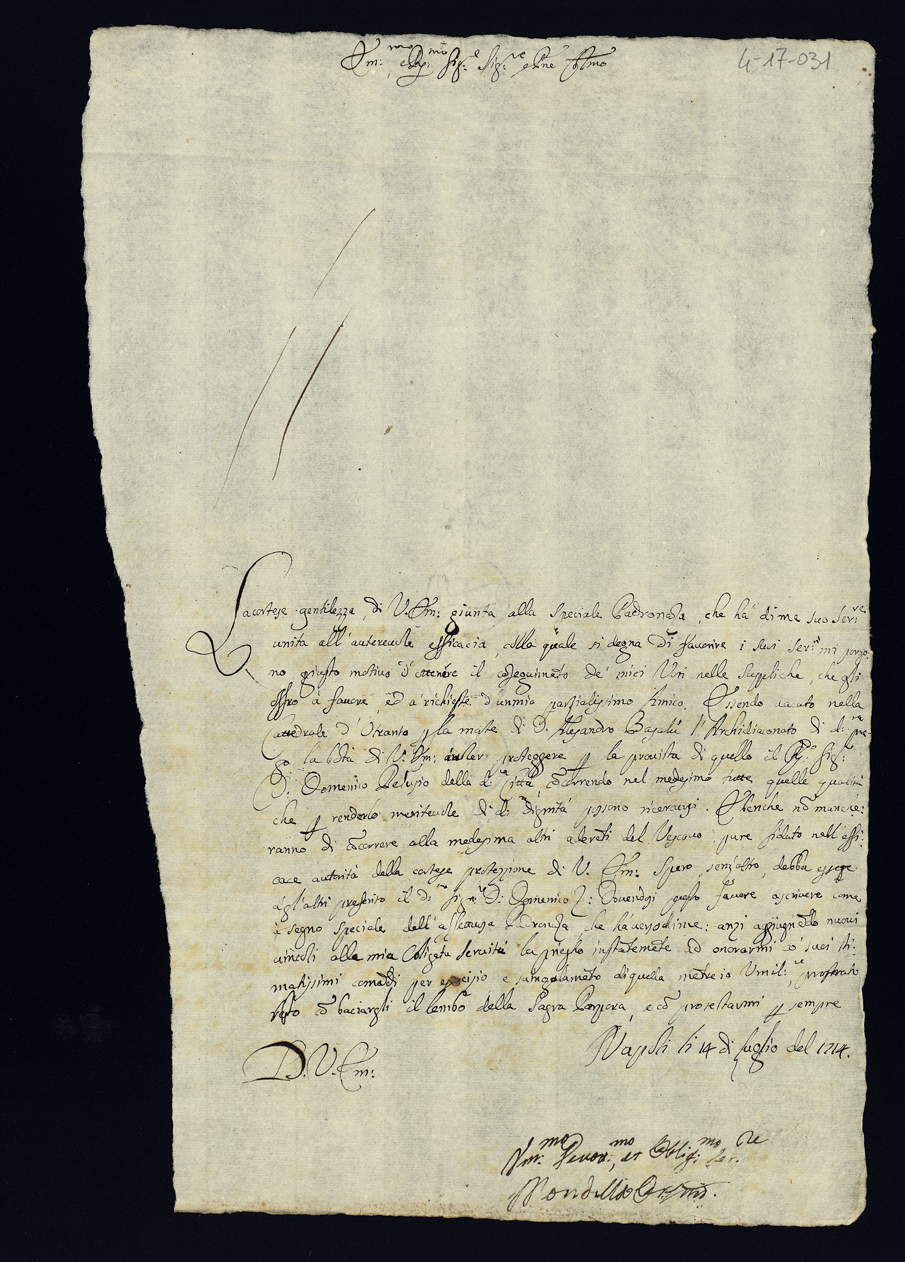 Em:mo, e Rmo Sig:e Sig:re e Pne Colmo
4-17-031
La cortese gentilezza, di V. Em: giunta alla speciale Padronanza, che hà di me suo Ser:re
unita all'autorevole efficacia, colla quale si degna di favorire i suoi Ser:ri mi porgo-
no giusto motivo d'ottenére il conseguimento de' miei Voti nelle suppliche, che gli
offro à favore ed à richieste d'un mio partialissimo Amico. Essendo vacato nella
Cattedrale d'Otranto p la morte di D. Alesandro l'Archidiaconato di di
la bontà di V. Em: proteggere p la provista di quello il Sig:
D: Domenico della d.ª Città, concorrendo nel medesimo tutte quelle qualità
che p renderlo meritevole di d.ª dignità possono ricercarsi. E benche nõ manche-
ranno di concorrere alla medesima altri aderenti del Vescovo, pure fidato nell'effi-
cace autorità della cortese protezzione di V. Em: spero senz'altro, debba essere
à gl'altri preferito il d.º Sig.r D: Domenico : Dovendosi questo favore ascrivere come
à segno speciale dell' Padronanza che hà verso di me: anzi aggiugnendo nuovi
vincoli alla mia obligata servitù la priego instantemente ad onorarmi co' suoi sti-
matissimi comandi per e di quella mentre io Umil:te prostrato
resto cõ baciargli il lembo della Sagra Porpora, e cõ protestarmi p sempre
Napoli li 14 di Luglio del 1714.
D. V. Em:
Vm:mo Devot:mo, et Oblig:mo Ser:re
Mondillo Orsini.